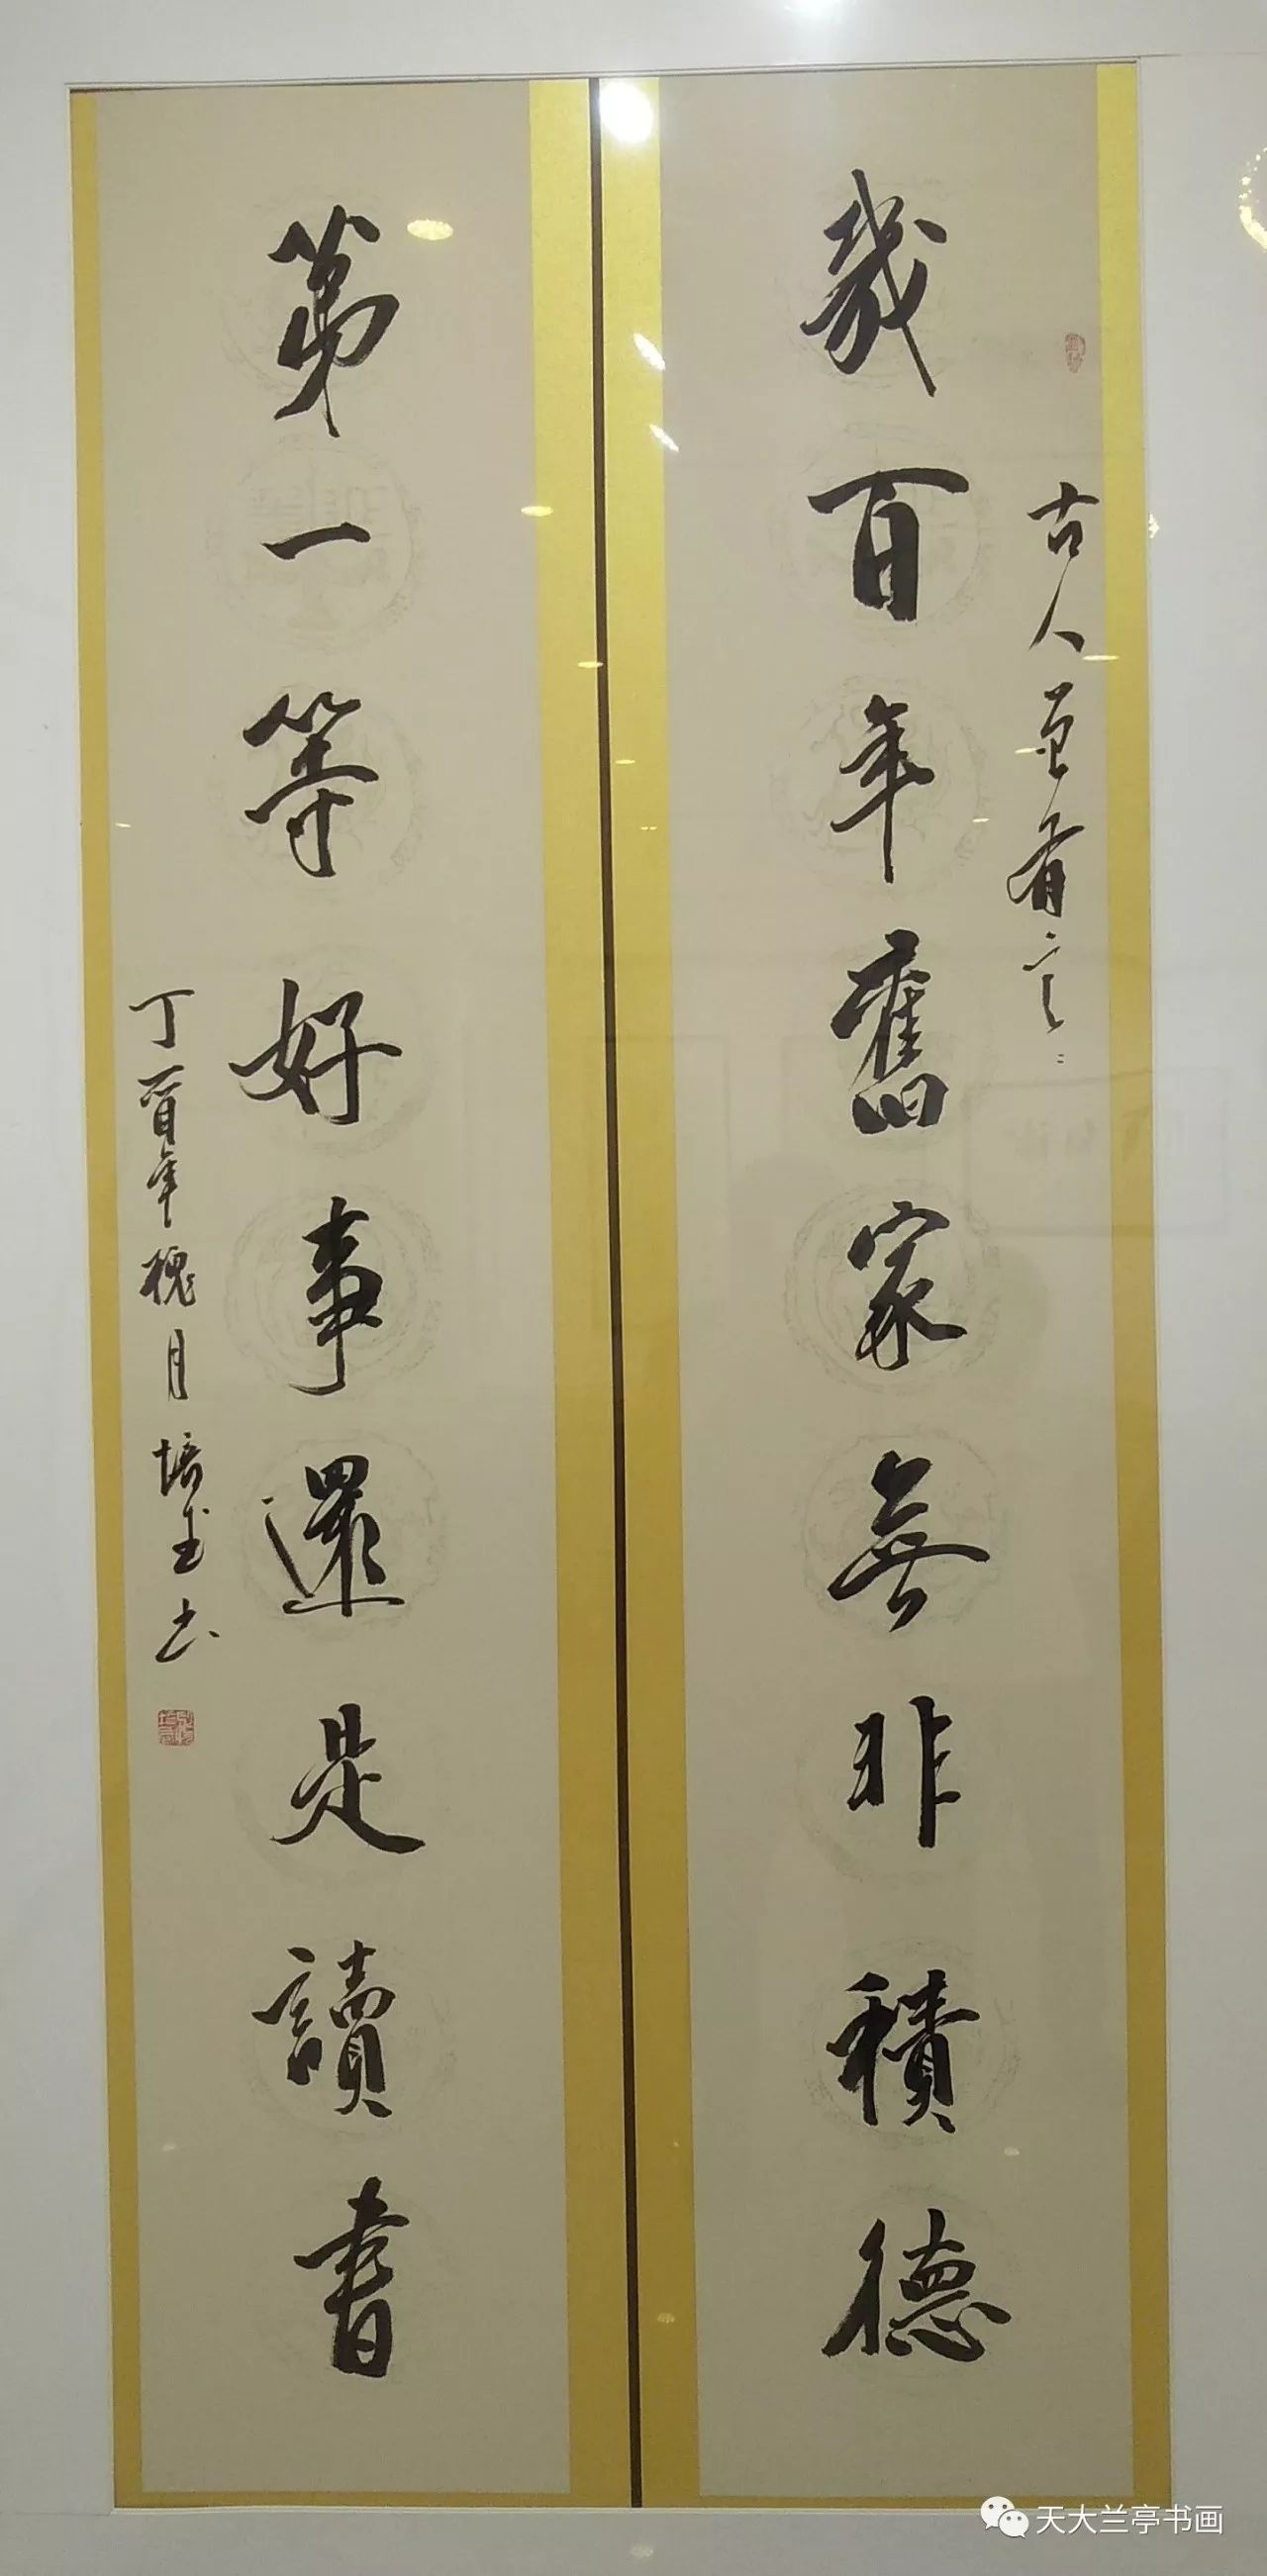 古人曾有言
幾百年舊家無非積德
第一等好事還是讀書
丁酉年槐月培玉书
天大兰亭书画